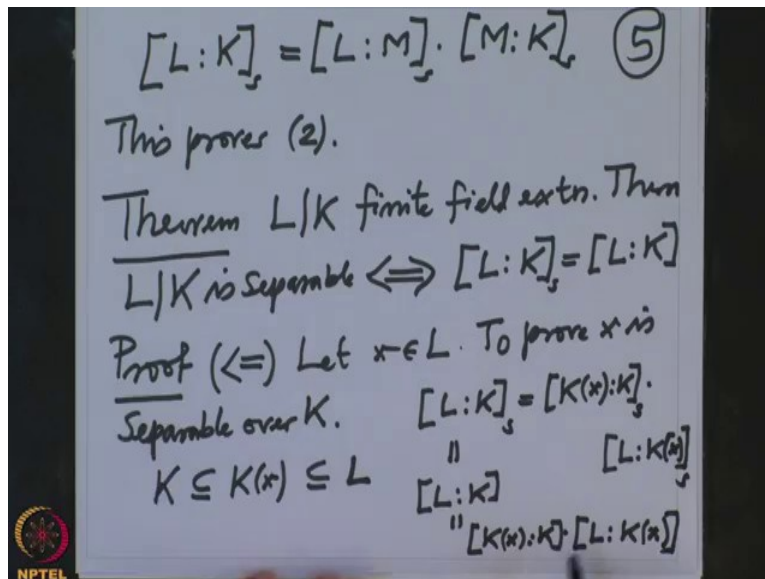 [L:K]_s = [L:M]_s · [M:K]_s ⑤
This proves (2).
Theorem L|K finite field extn. Then
L|K is separable ⟺ [L:K]_s = [L:K]
Proof (⇐) Let x ∈ L. To prove x is
Separable over K. [L:K]_s = [K(x):K]_s ·
[L:K(x)]_s
K ⊆ K(x) ⊆ L
"
[L:K]
" [K(x):K]·[L:K(x)]
NPTEL